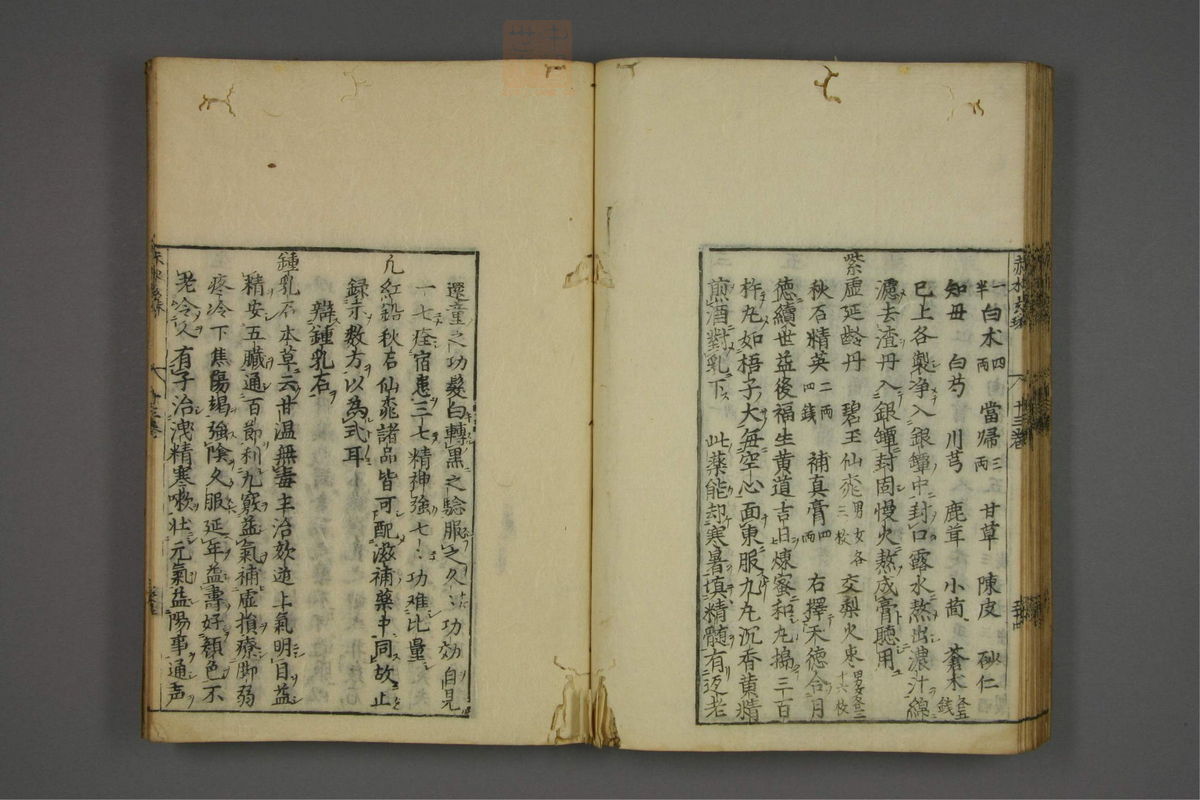 白朮四兩 當歸三兩 甘草 陳皮 砂仁
知母 白芍 川芎 鹿茸 小茴 蒼朮各五錢
已上各製淨入銀鑵中封口露水熬出濃汁綿
濾去渣丹入銀鑵封固慢火熬成膏聽用
紫虛延齡丹 碧玉仙桃男女各三枚 交梨火棗
秋石精英二兩四錢 補真膏四兩 右擇天德合月
德續世益後福生黄道吉日煉蜜和丸搗三百
杵丸如梧子大每空心面東服九丸沉香黄精
煎酒對乳下 此藥能却寒暑填精髓有返老
還童之功髮白轉黒之驗服之久〻功効自見
一七痊宿患三七精神強七〻功难比量
凢紅鉛秋石仙桃諸品皆可配滋補藥中同故止
録示数方以為式耳
辯鍾乳石
鍾乳石本草云甘温無毒主治欬逆上氣明目益
精安五臓通百節利九竅益氣補虚損療脚弱
疼冷下焦傷竭強陰久服延年益壽好顔色不
老令人有子治洩精寒嗽壮元氣益陽事通声